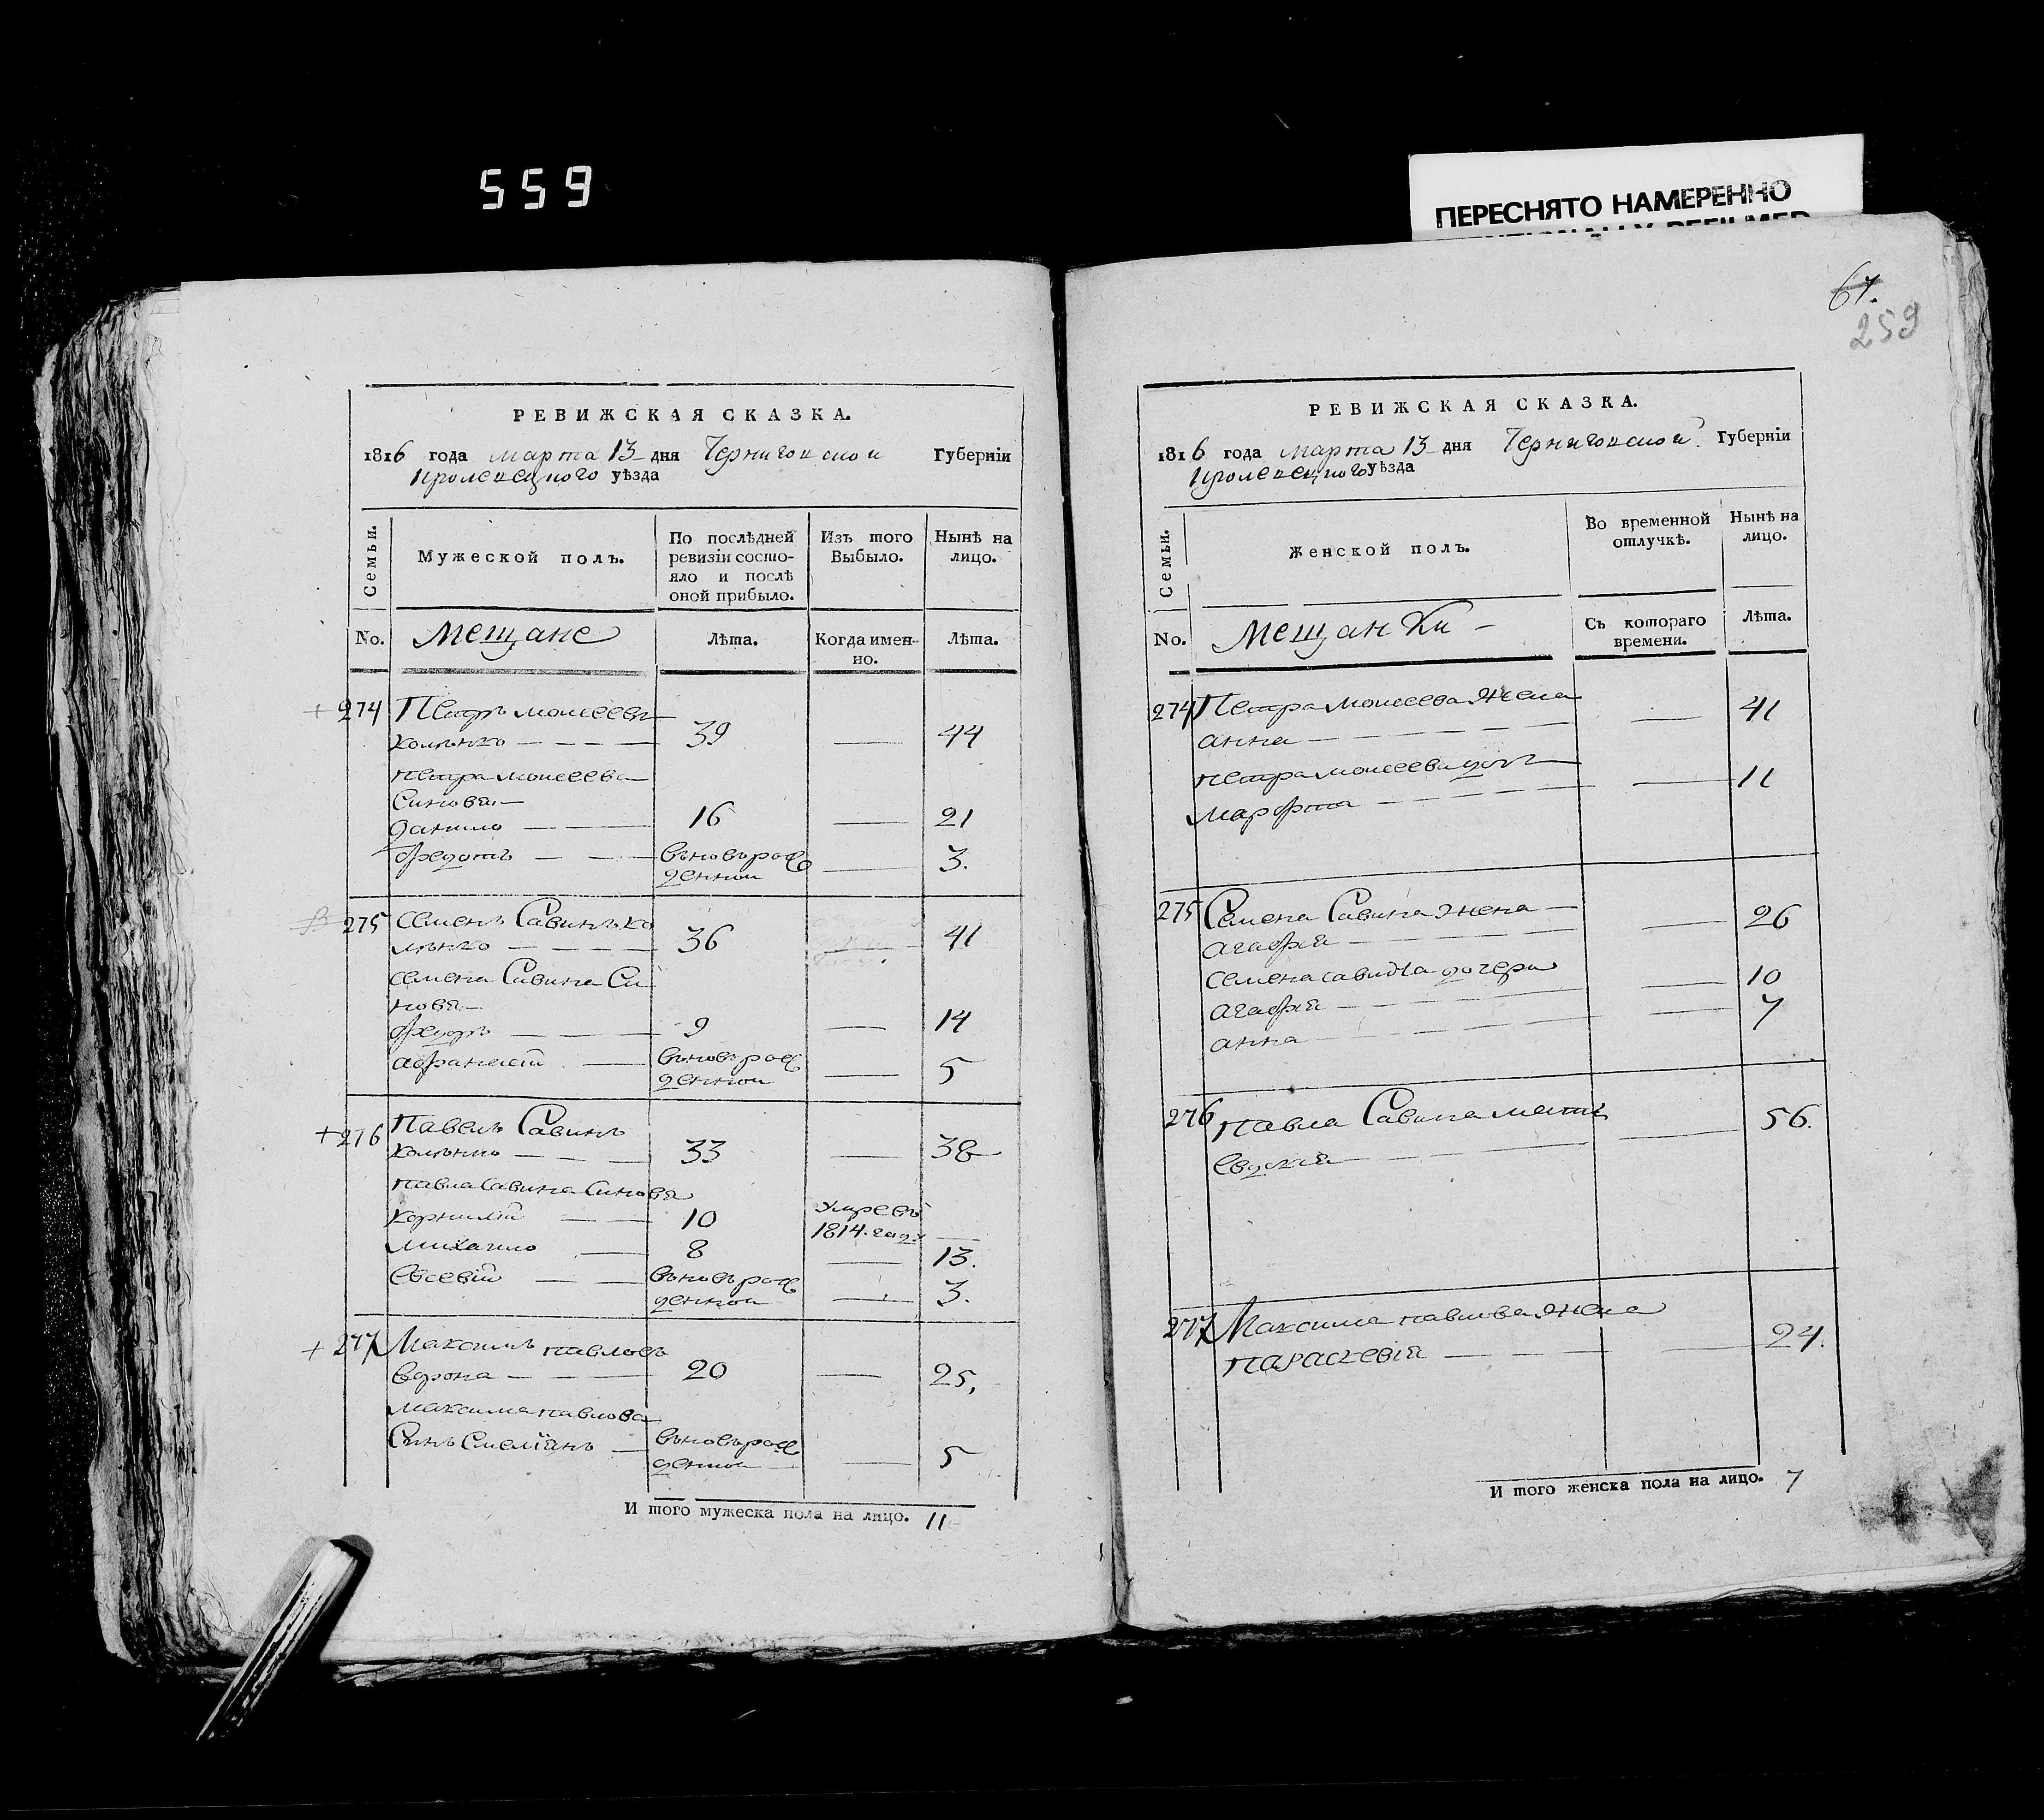 559
ПЕРЕСНЯТО НАМЕРЕННО
67.
259
РЕВИЖСКАЯ СКАЗКА.
1816 года марта 13 дня Черниговской Губерніи
Кролевецкого уѣзда
Семьи.
Мужеской полъ.
По послѣдней ревизіи состояло и послѣ оной прибыло.
Изъ того Выбыло.
Нынѣ на лицо.
No.
Мещане
Лѣта.
Когда именно.
Лѣта.
274 Петръ моисеевъ
39 44
петра моисеева
Синовья
данило 16 21
федотъ вьновьрож 3.
денной
275 семенъ Савинъ ко
36 41
семена Савина Си
новья
федоръ 9 14
афанасій вьновьрож
денной 5
276 Павелъ Савинъ
33 38
павла Савина Синовья
корнилій 10 Умре въ
1814. году
михаило 8 13.
Евсевій вьновьрож
денной 3.
277 Максимъ павловъ
ворона 20 25,
максима павлова
Синъ Емеліянъ вьновьрож
денной 5
И того мужеска пола на лицо. 11
РЕВИЖСКАЯ СКАЗКА.
1816 года марта 13 дня Черниговской Губерніи
Кролевецкого уѣзда
Семьи.
Женской полъ.
Во временной отлучкѣ.
Нынѣ на лицо.
No.
Мещанки
Съ котораго времени.
Лѣта.
274 Петра моисеева жена
анна 41
петра моисеева дочь
марфа 11
275 Семена Савина жена
агафія 26
семена савина дочери
агафія 10
анна 7
276 павла Савина мать
Евдокія 56.
277 Максима павлова жена
параскевія 24.
И того женска пола на лицо. 7